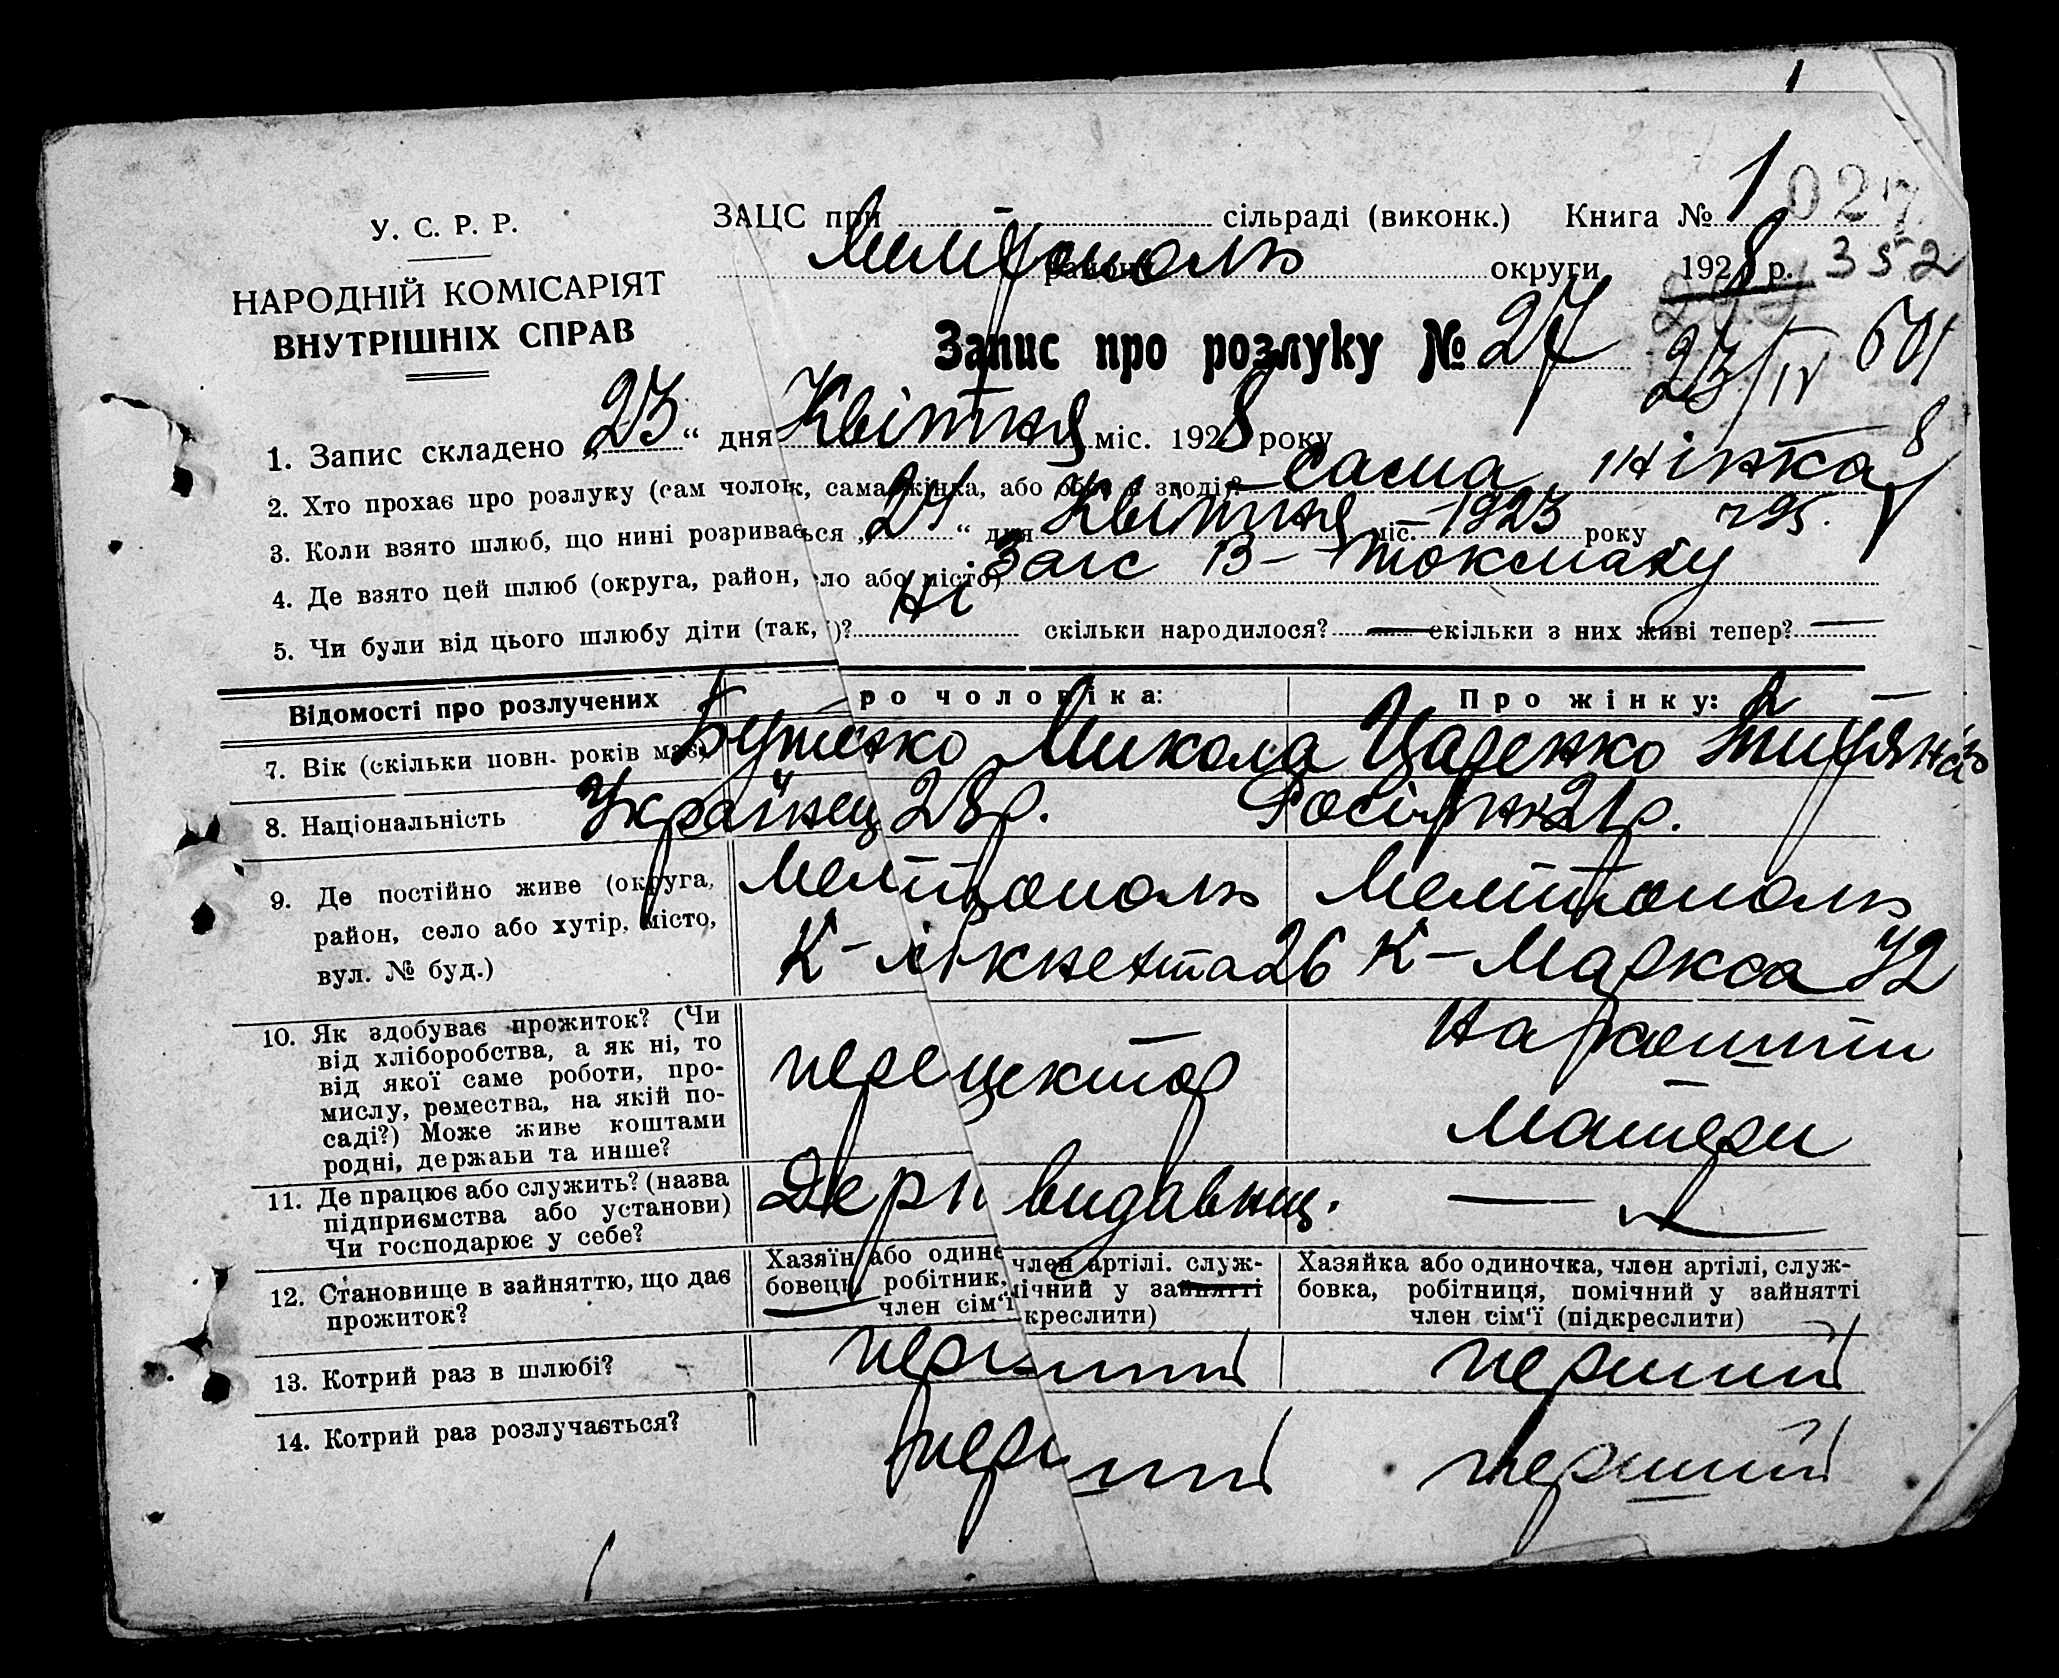 У. С. Р. Р.
НАРОДНІЙ КОМІСАРІЯТ
ВНУТРІШНІХ СПРАВ
ЗАЦС при сільраді (виконк.) Книга № 1 027
Мелітополь округи 1928 р. 352
Запис про розлуку № 27 23/IV
1. Запис складено „23“ дня Квітня міс. 1928 року
2. Хто прохає про розлуку (сам чоловік, сама жінка, або обоє в згоді)? Сама жінка
3. Коли взято шлюб, що нині розривається „24“ дня Квітня міс. 1923 року
4. Де взято цей шлюб (округа, район, село або місто) Загс В-Токмаку
5. Чи були від цього шлюбу діти (так, ні)? Ні скільки народилося? — скільки з них живі тепер? —
Відомості про розлучених Про чоловіка: Про жінку:
7. Вік (скільки повн. років має) Бутенко Микола Царенко
8. Національність Українец 28 р. 21 р.
9. Де постійно живе (округа, район, село або хутір, місто, вул. № буд.)
Мелітополь Мелітополь
К-Лібкнехта 26 К-Маркса
10. Як здобуває прожиток? (Чи
від хліборобства, а як ні, то
від якої саме роботи, про-
мислу, ремества, на якій по-
саді?) Може живе коштами
родні, держави та инше?
На кошти
матери
11. Де працює або служить? (назва
підприємства або установи)
Чи господарює у себе?
Держ видавниц. —
12. Становище в зайняттю, що дає
прожиток?
Хазяїн або одине член артілі. служ-
бовець, робітник, мічний у зайнятті
член сім'ї креслити)
Хазяйка або одиночка, член артілі, служ-
бовка, робітниця, помічний у зайнятті
член сім'ї (підкреслити)
13. Котрий раз в шлюбі? перший перший
14. Котрий раз розлучається? перший перший